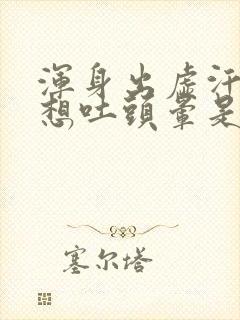 渾身出虛汗
想吐頭暈是
塞尔塔